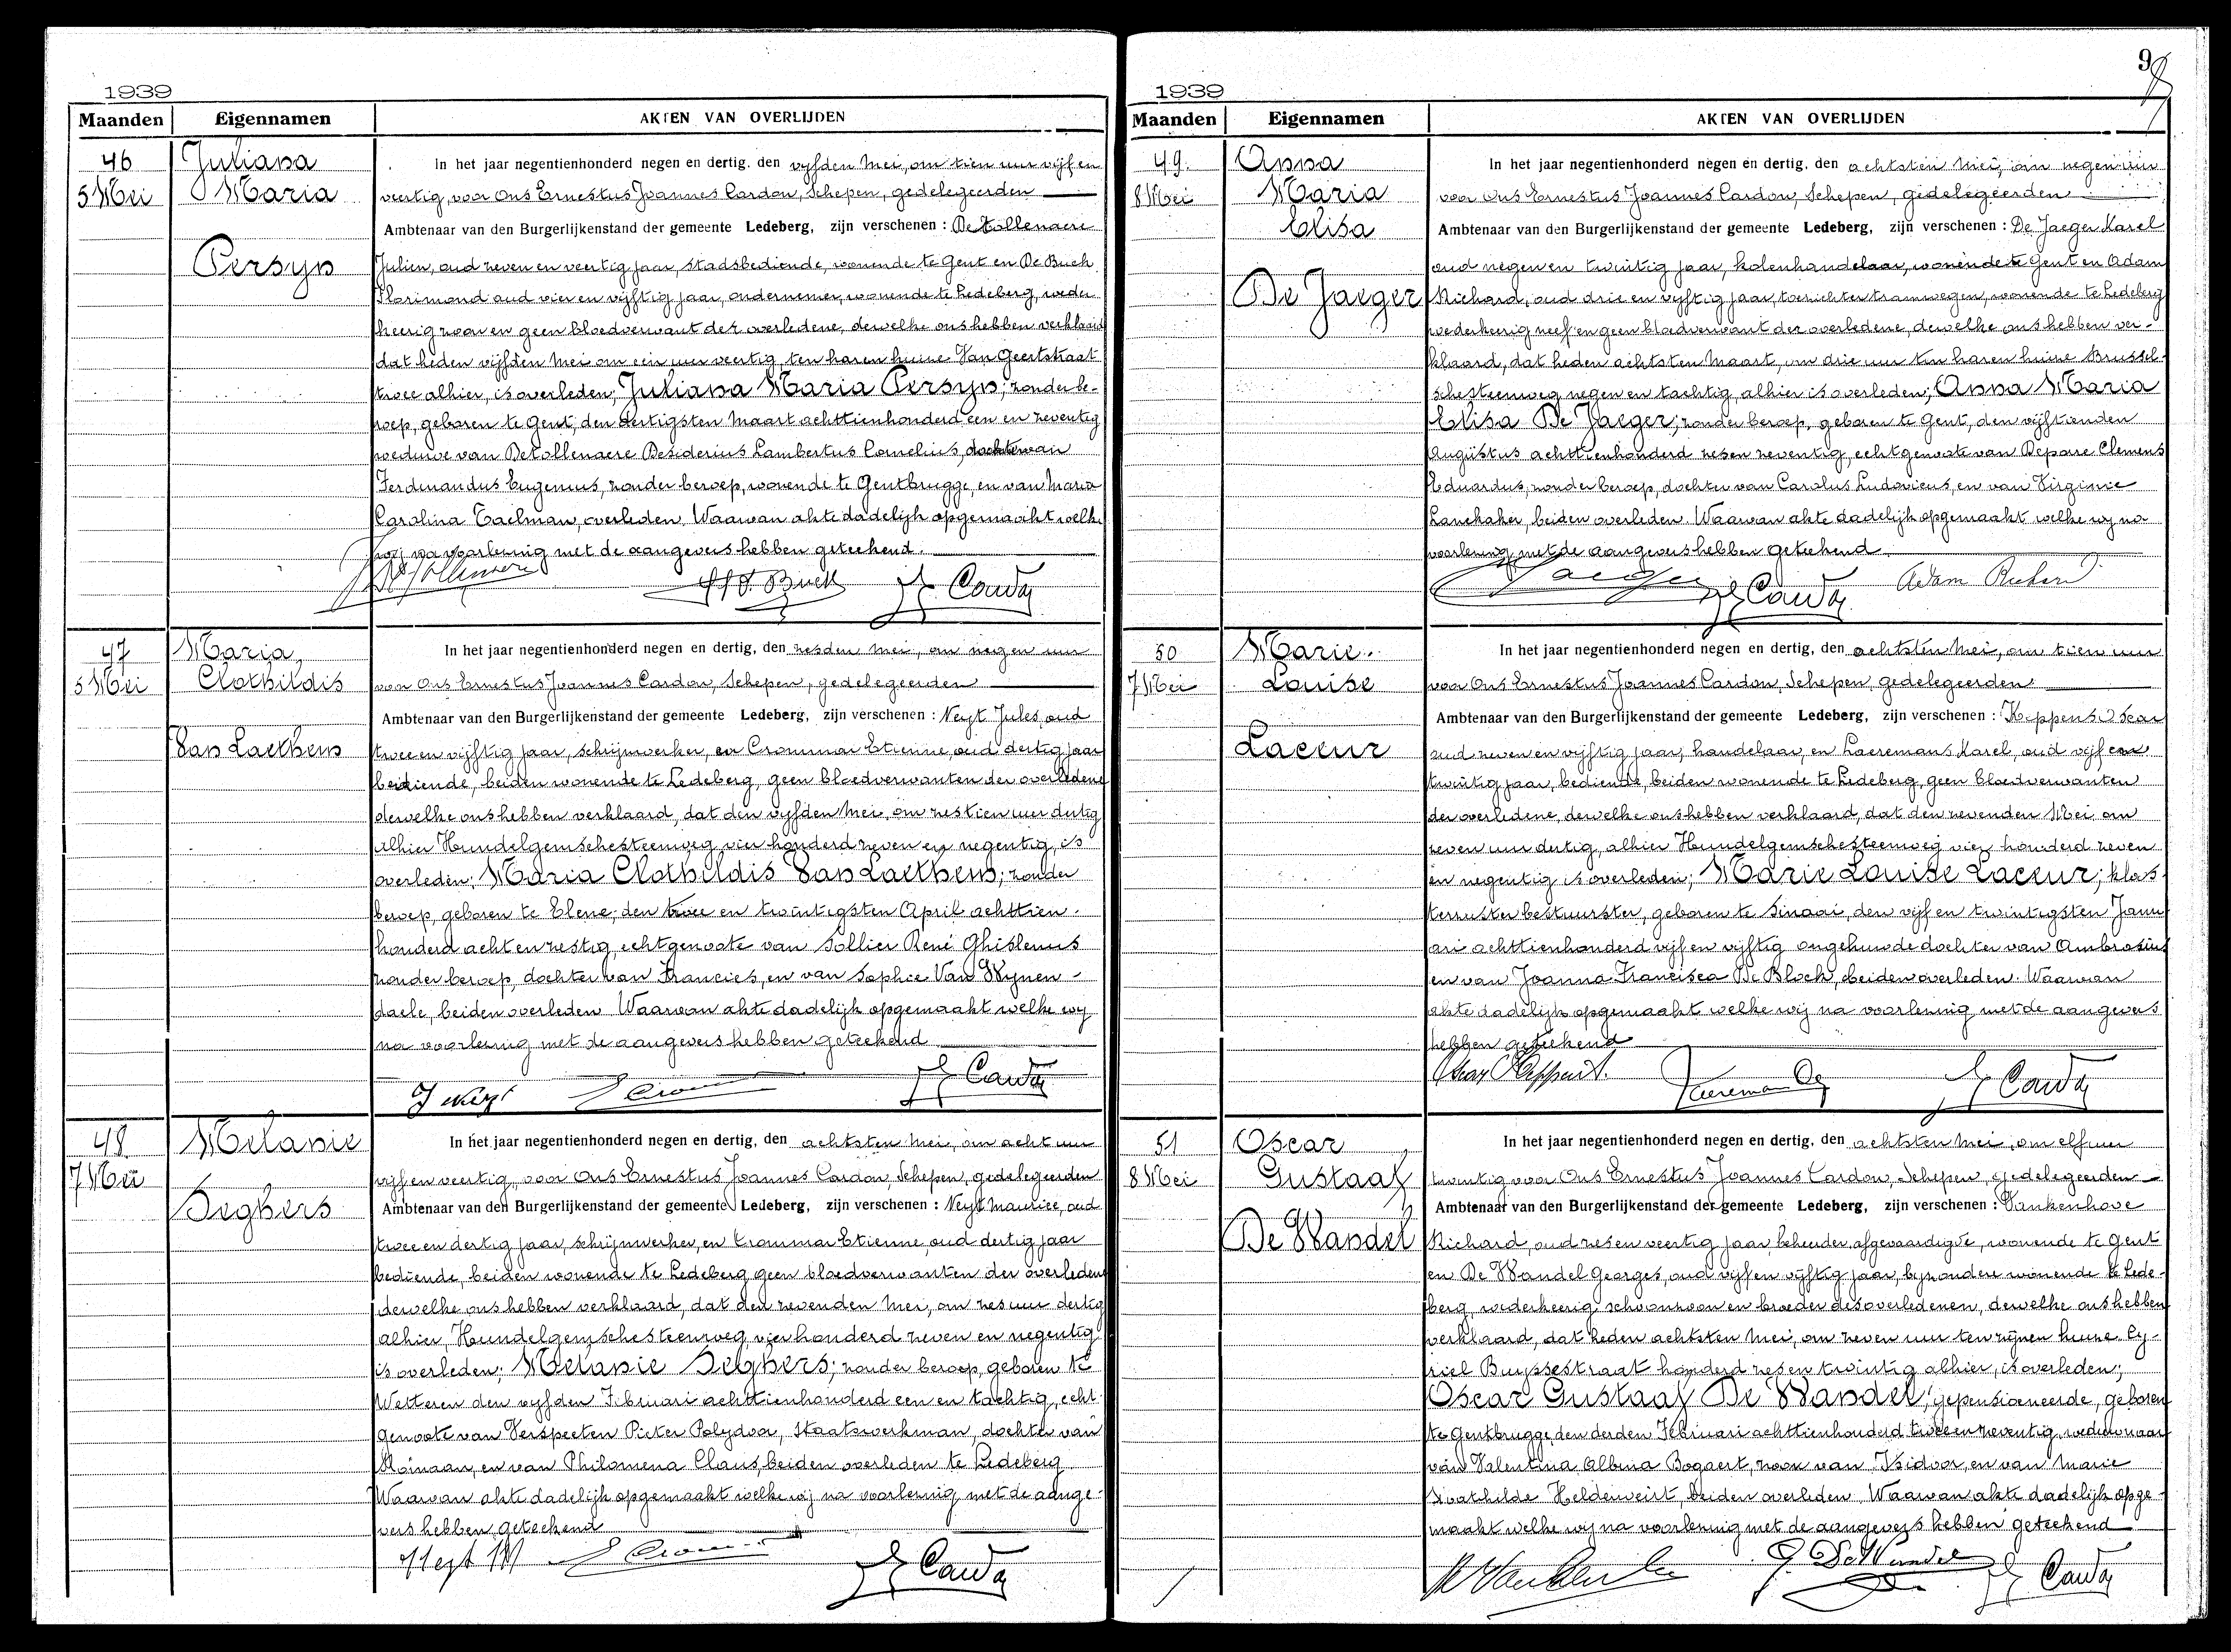 1939
Maanden Eigennamen AKTEN VAN OVERLIJDEN
46 Juliana
5 Mei Maria
Persyn
In het jaar negentienhonderd negen en dertig, den vyfden Mei, om tien uur vijf en
veertig, voor Ons Ernestus Joannes Cardon, Schepen, gedelegeerden
Ambtenaar van den Burgerlijkenstand der gemeente Ledeberg, zijn verschenen : De Tollenaere
Julien, oud zeven en veertig jaar, stadsbediende, wonende te Gent en De Buck
Florimond oud vier en vijftig jaar, ondernemer, wonende te Ledeberg, weder
keerig zoon en geen bloedverwant der overledene, dewelke ons hebben verklaard
dat heden vijfden Mei om een uur veertig, ten haren huize Van Geertstraat
twee alhier, is overleden; Juliana Maria Persyn; zonder be-
roep, geboren te Gent, den dertigsten Maart achttienhonderd een en zeventig
weduwe van De Tollenaere Desiderius Lambertus Cornelius, dochter van
Ferdinandus Eugenius, zonder beroep, wonende te Gentbrugge, en van Maria
Carolina Taelman, overleden. Waarvan akte dadelijk opgemaakt welke
wij na voorlezing met de aangevers hebben geteekend.
47 Maria
5 Mei Clothildis
Van Laethem
In het jaar negentienhonderd negen en dertig, den zesden Mei, om negen uur
voor Ons Ernestus Joannes Cardon, Schepen, gedelegeerden
Ambtenaar van den Burgerlijkenstand der gemeente Ledeberg, zijn verschenen : Neyt Jules, oud
twee en vijftig jaar, schrijnwerker, en Crommar Etienne, oud dertig jaar
bediende, beiden wonende te Ledeberg, geen bloedverwanten der overledene
dewelke ons hebben verklaard, dat den vyfden Mei, om zestien uur dertig
alhier Hundelgemschesteenweg vier honderd zeven en negentig, is
overleden; Maria Clothildis Van Laethem; zonder
beroep, geboren te Elene, den twee en twintigsten April achttien-
honderd acht en zestig, echtgenoote van Sollier René Ghislenus
zonder beroep, dochter van Francies, en van Sophie Van Wynen-
daele, beiden overleden. Waarvan akte dadelijk opgemaakt welke wy
na voorlezing met de aangevers hebben geteekend
J Neyt
48 Melanie
7 Mei
Seghers
In het jaar negentienhonderd negen en dertig, den achtsten Mei, om acht uur
vijf en veertig, voor Ons Ernestus Joannes Cardon, Schepen, gedelegeerden
Ambtenaar van den Burgerlijkenstand der gemeente Ledeberg, zijn verschenen : Neyt Maurice, oud
twee en dertig jaar, schrijnwerker, en Crommar Etienne, oud dertig jaar
bediende, beiden wonende te Ledeberg geen bloedverwanten der overledene
dewelke ons hebben verklaard, dat den zevenden Mei, om zes uur dertig
alhier, Hundelgemschesteenweg vierhonderd zeven en negentig
is overleden; Melanie Seghers; zonder beroep, geboren te
Wetteren den vyfden Februari achttienhonderd een en tachtig, echt-
genoote van Verspeeten Pieter Polydoor, Staatswerkman, dochter van
Romaan, en van Philomena Claus, beiden overleden te Ledeberg
Waarvan akte dadelijk opgemaakt welke wij na voorlezing met de aange-
vers hebben geteekend
Neyt M
1939
9
Maanden Eigennamen AKTEN VAN OVERLIJDEN
49. Anna
8 Mei Maria
Elisa
De Jaeger
In het jaar negentienhonderd negen en dertig, den achtsten Mei, om negen uur
voor Ons Ernestus Joannes Cardon, Schepen, gedelegeerden
Ambtenaar van den Burgerlijkenstand der gemeente Ledeberg, zijn verschenen : De Jaeger Karel
oud negen en twintig jaar, kolenhandelaar, wonende te Gent en Adam
Richard, oud drie en vyftig jaar, toezichter tramwegen, wonende te Ledeberg
wederkeerig neef en geen bloedverwant der overledene, dewelke ons hebben ver-
klaard, dat heden achtsten Maart, om drie uur ten haren huize Brussel-
schesteenweg negen en tachtig, alhier is overleden; Anna Maria
Elisa De Jaeger; zonder beroep, geboren te Gent, den vijftienden
Augustus achttienhonderd zes en zeventig, echtgenoote van Depare Clemens
Eduardus, zonder beroep, dochter van Carolus Ludovicus, en van Virginie
beiden overleden. Waarvan akte dadelijk opgemaakt welke wy na
voorlezing met de aangevers hebben geteekend
Adam Richard
50 Marie
7 Mei Louise
Laceur
In het jaar negentienhonderd negen en dertig, den achtsten Mei, om tien uur
voor Ons Ernestus Joannes Cardon, Schepen, gedelegeerden
Ambtenaar van den Burgerlijkenstand der gemeente Ledeberg, zijn verschenen : Keppens Oscar
oud zeven en vyftig jaar, handelaar, en Laeremans Karel, oud vijf en
twintig jaar, bediende, beiden wonende te Ledeberg, geen bloedverwanten
der overledene, dewelke ons hebben verklaard, dat den zevenden Mei, om
zeven uur dertig, alhier Hundelgemschesteenweg vier honderd zeven
en negentig is overleden; Marie Louise Laceur; kloos-
terzuster bestuurster, geboren te Sinaai, den vijf en twintigsten Janu
ari achttienhonderd vijf en vijftig ongehuwde dochter van Ambrosius
en van Joanna Francisca De Block, beiden overleden. Waarvan
akte dadelijk opgemaakt welke wij na voorlezing met de aangevers
hebben geteekend
51 Oscar
8 Mei Gustaaf
De Wandel
In het jaar negentienhonderd negen en dertig, den achtsten Mei, om elf uur
twintig voor Ons Ernestus Joannes Cardon, Schepen, gedelegeerden
Ambtenaar van den Burgerlijkenstand der gemeente Ledeberg, zijn verschenen : Vankenhove
Richard, oud zes en veertig jaar, beheerder afgevaardigde, wonende te Gent
en De Wandel Georges, oud vijf en vijftig jaar, byzondere wonende te Lede-
berg, wederkeerig schoonzoon en broeder des overledenen, dewelke ons hebben
verklaard, dat heden achtsten Mei, om zeven uur ten zynen huize Cy-
riel Buyssestraat honderd zes en twintig alhier, is overleden;
Oscar Gustaaf De Wandel; gepensioneerde, geboren
te Gentbrugge, den derden Februari achttienhonderd twee en zeventig, weduwnaar
van Valentina Albina Bogaert, zoon van Isidoor, en van Marie
beiden overleden. Waarvan akte dadelijk opge-
maakt welke wij na voorlezing met de aangevers hebben geteekend
G. De Wandel